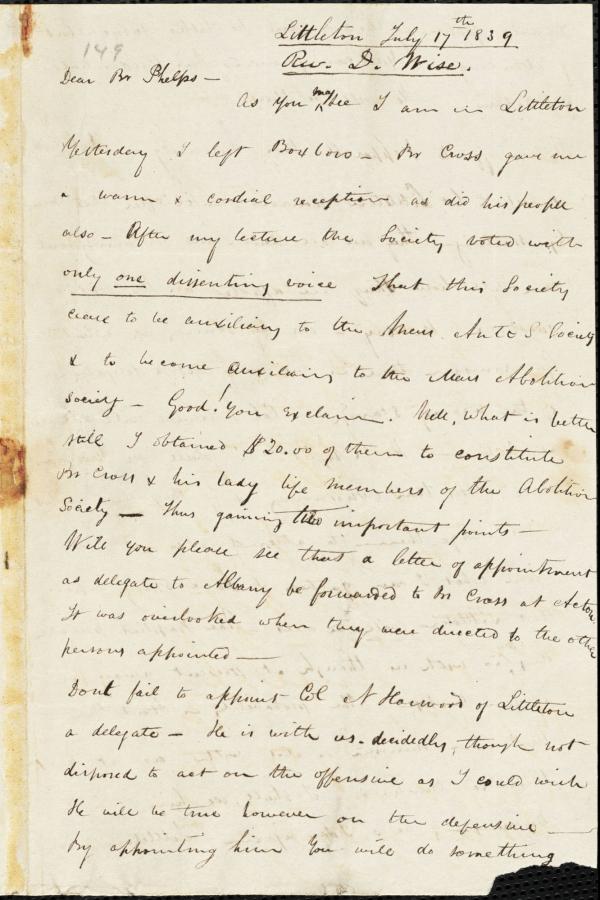 149
Littleton July 17th 1839
Rev. D. Wise.
Dear Br Phelps —
As you may see I am in Littleton
Yesterday I left Boxboro — Br Cross gave me
a warm & cordial reception as did his people
also — After my lecture the Society voted with
only one dissenting voice That this Society
cease to be auxiliary to the Mass Anti S Society
& to become auxiliary to the Mass Abolition
Society — Good! You exclaim. Well, what is better
still I obtained $20.00 of them to constitute
Br Cross & his lady life members of the Abolition
Society — Thus gaining two important points —
Will you please see that a letter of appointment
as delegate to Albany be forwarded to Br Cross at Acton
It was overlooked when they were directed to the other
persons appointed —
Dont fail to appoint Col N Harwood of Littleton
a delegate — He is with us. decidedly, though not
disposed to act on the offensive as I could wish
He will be true however on the defensive —
By appointing him You will do something